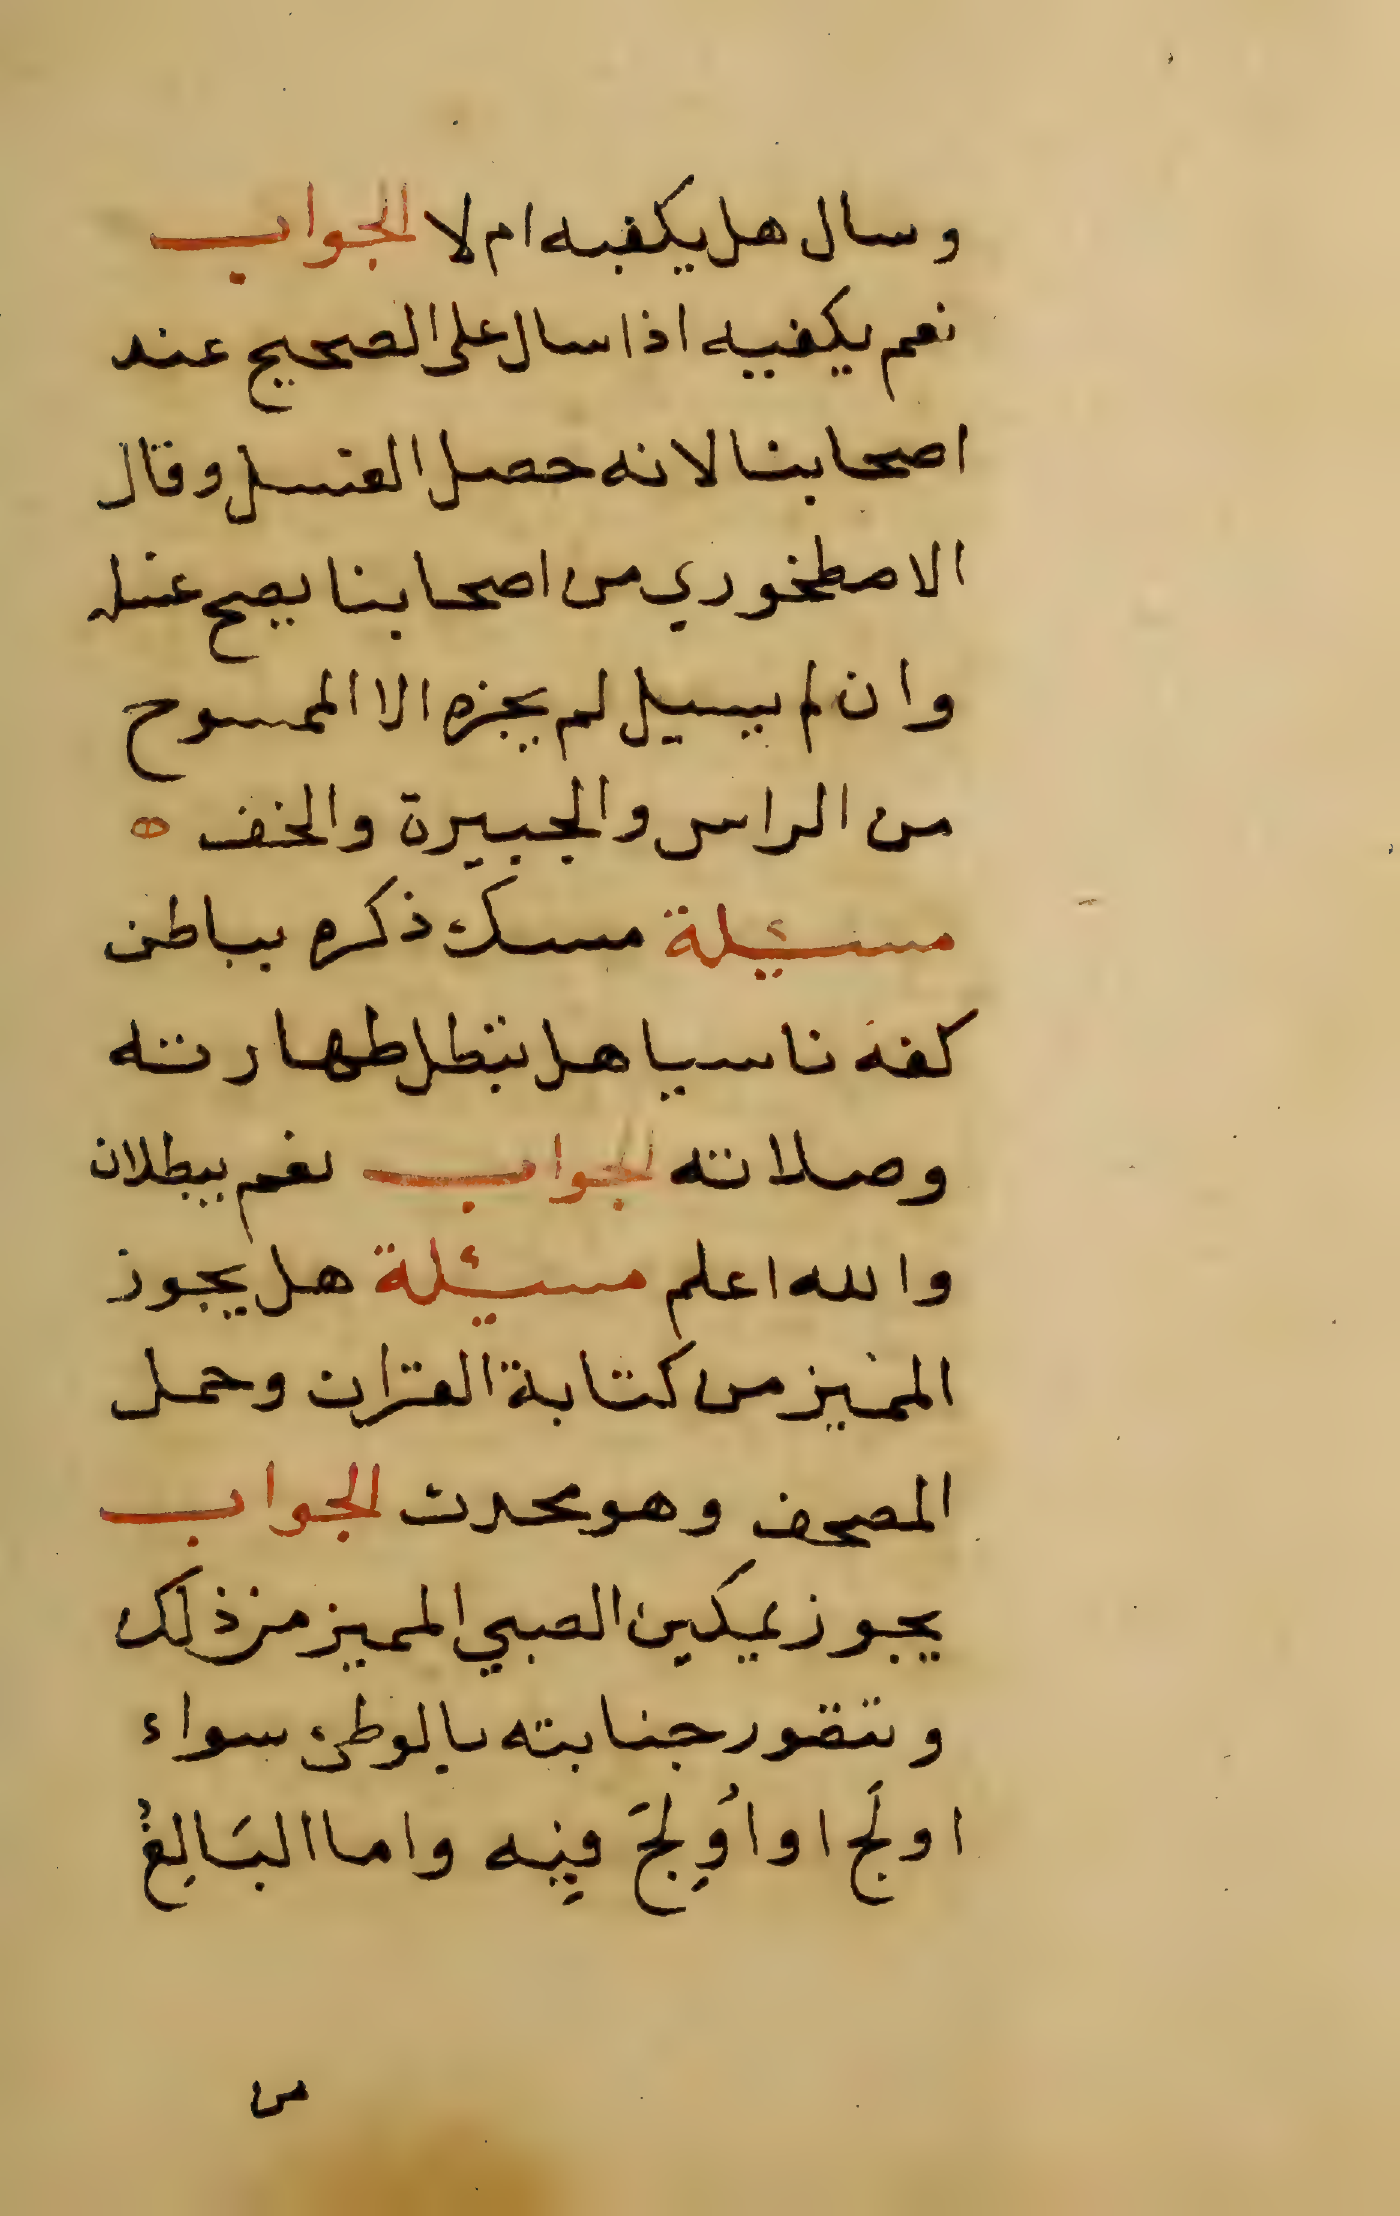 وسال هل يكفيه ام لا الجواب
نعم يكفيه اذا سال على الصحيح عند
اصحابنا لانه حصل الغسل وقال
الاصطخوري من اصحابنا يصح غسله
وان لم يسيل لم يجزه الا الممسوح
من الراس والجبيرة والخف ه
مسيئلة مسك ذكره بباطن
كفه ناسيا هل تبطل طهارته
وصلاته الجواب نعم يبطلان
والله اعلم مسيئلة هل يجوز
المميز من كتابة القران وحمل
المصحف وهو محدث الجواب
يجوز تمكين الصبي المميز من ذلك
وتتصور جنابته بالوطئ سواء
اولَج او اُولِجَ فِيه واما البَالِغُ
من